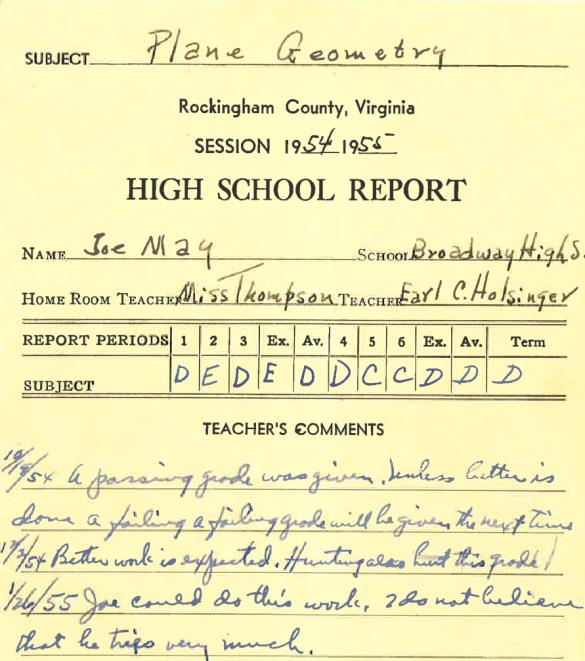 SUBJECT Plane Geometry
Rockingham County, Virginia
SESSION 1954 1955
HIGH SCHOOL REPORT
NAME Joe May SCHOOL Broadway High S.
HOME ROOM TEACHER Miss Thompson TEACHER Earl C. Holsinger
REPORT PERIODS 1 2 3 Ex. Av. 4 5 6 Ex. Av. Term
SUBJECT D E D E D D C C D D D
TEACHER'S COMMENTS
10/9/54 A passing grade was given. Unless better is
done a failing a failing grade will be given the next time
12/2/54 Better work is expected. Hunting also hurt this grade!
1/26/55 Joe could do this work. I do not believe
that he trys very much.